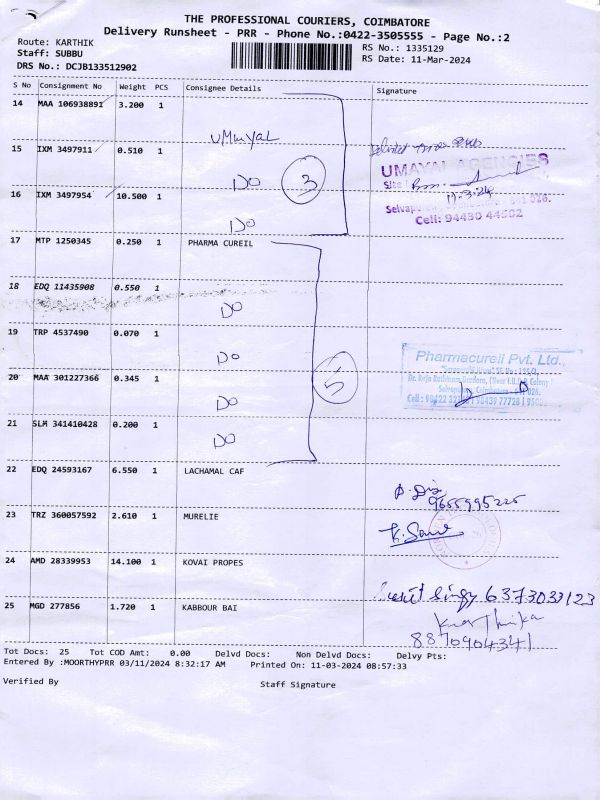 THE PROFESSIONAL COURIERS, COIMBATORE
Delivery Runsheet - PRR - Phone No.:0422-3505555 - Page No.:2
Route: KARTHIK RS No.: 1335129
Staff: SUBBU RS Date: 11-Mar-2024
DRS No.: DCJB133512902
S No Consignment No Weight PCS Consignee Details Signature
14 MAA 106938891 3.200 1
UMayaL
15 IXM 3497911 0.510 1
UMAYAL AGENCIES
DO 3
11-3-24
16 IXM 3497954 10.500 1
Cell: 94430 44502
DO
17 MTP 1250345 0.250 1 PHARMA CUREIL
18 EDQ 11435908 0.550 1
DO
19 TRP 4537490 0.070 1
DO Pharmacureil Pvt. Ltd.,
20 MAA 301227366 0.345 1 5
DO
21 SLM 341410428 0.200 1
DO
22 EDQ 24593167 6.550 1 LACHAMAL CAF
9655995225
23 TRZ 360057592 2.610 1 MURELIE
24 AMD 28339953 14.100 1 KOVAI PROPES
6373033123
25 MGD 277856 1.720 1 KABBOUR BAI
Karthika
8870904341
Tot Docs: 25 Tot COD Amt: 0.00 Delvd Docs: Non Delvd Docs: Delvy Pts:
Entered By :MOORTHYPRR 03/11/2024 8:32:17 AM Printed On: 11-03-2024 08:57:33
Verified By Staff Signature